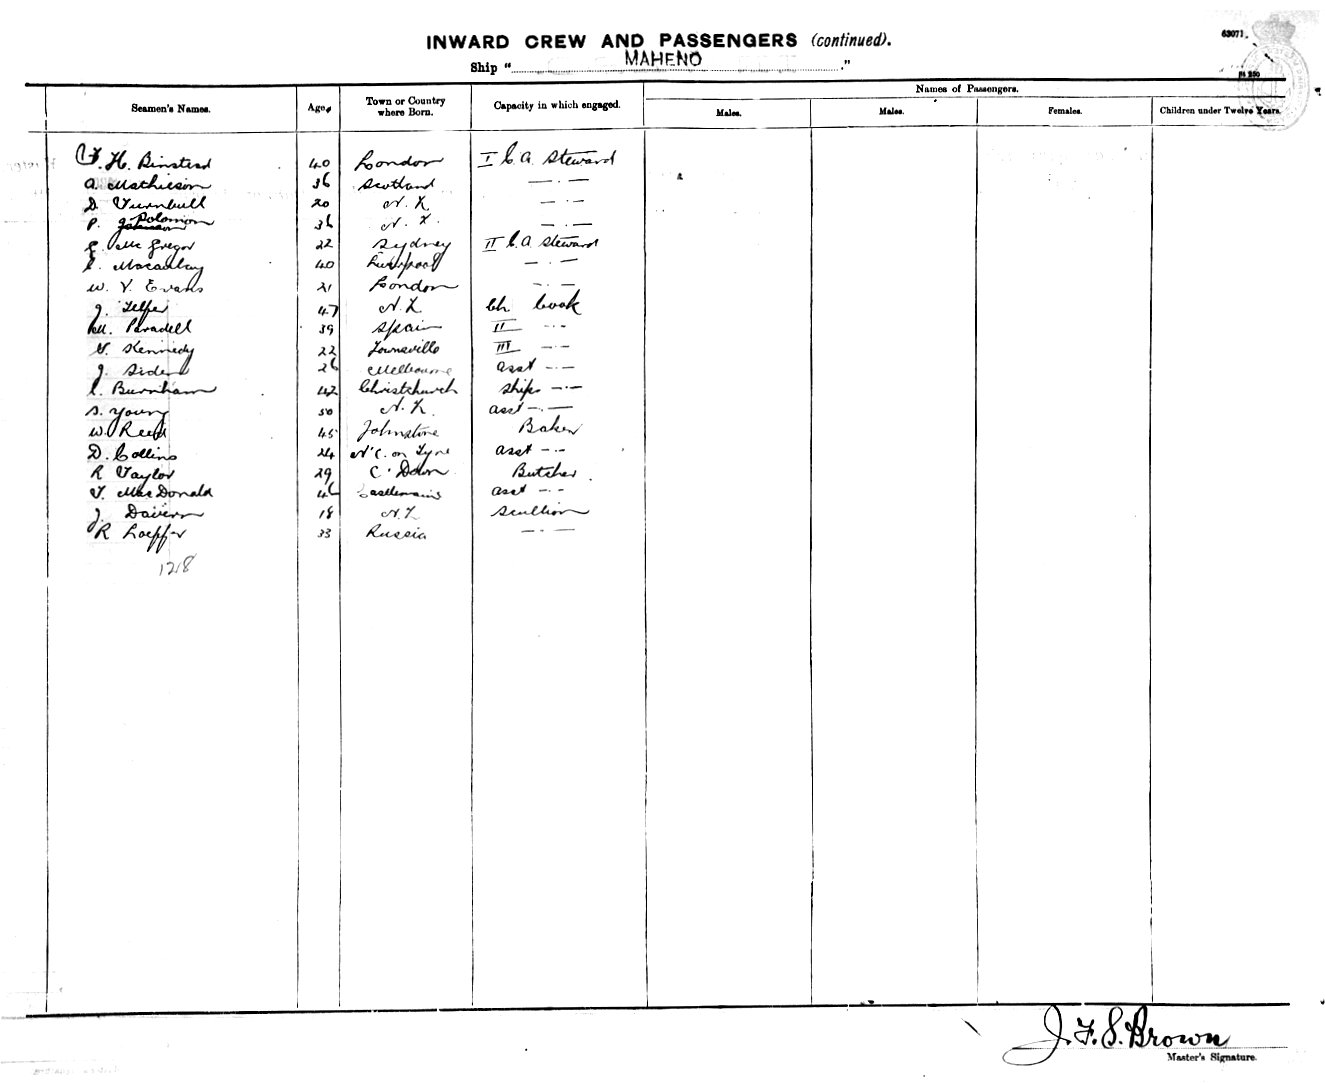 INWARD CREW AND PASSENGERS (continued).
63071.
Ship "MAHENO."
Names of Passengers.
Seamen's Names. Age. Town or Country where Born. Capacity in which engaged. Males. Males. Females. Children under Twelve Years.
H. Binsted 40 London I C.A. Steward
A. Mathieson 36 Scotland —·—
D. Turnbull 20 N.Z. —·—
P. Solomon 36 N.Z. —·—
McGregor 22 Sydney II C.A. Steward
C. Macaulay 40 Liverpool —·—
W. V. Evans 21 London —·—
J. Telfer 47 N.Z. Ch. Cook
M. Paradell 39 Spain II —·—
T. Kennedy 22 Townsville III —·—
J. 26 Melbourne asst —·—
C. Burnham 42 Christchurch Ships —·—
S. Young 50 N.Z. asst —·—
W. Reed 45 Johnstone Baker
D. Collins 24 N'C. on Tyne asst —·—
R Taylor 29 C. Down Butcher.
T. MacDonald 46 Castlemaine asst —·—
J. 18 N.Z. Scullion
R 33 Russia —·—
128
J. F. S. Brown
Master's Signature.